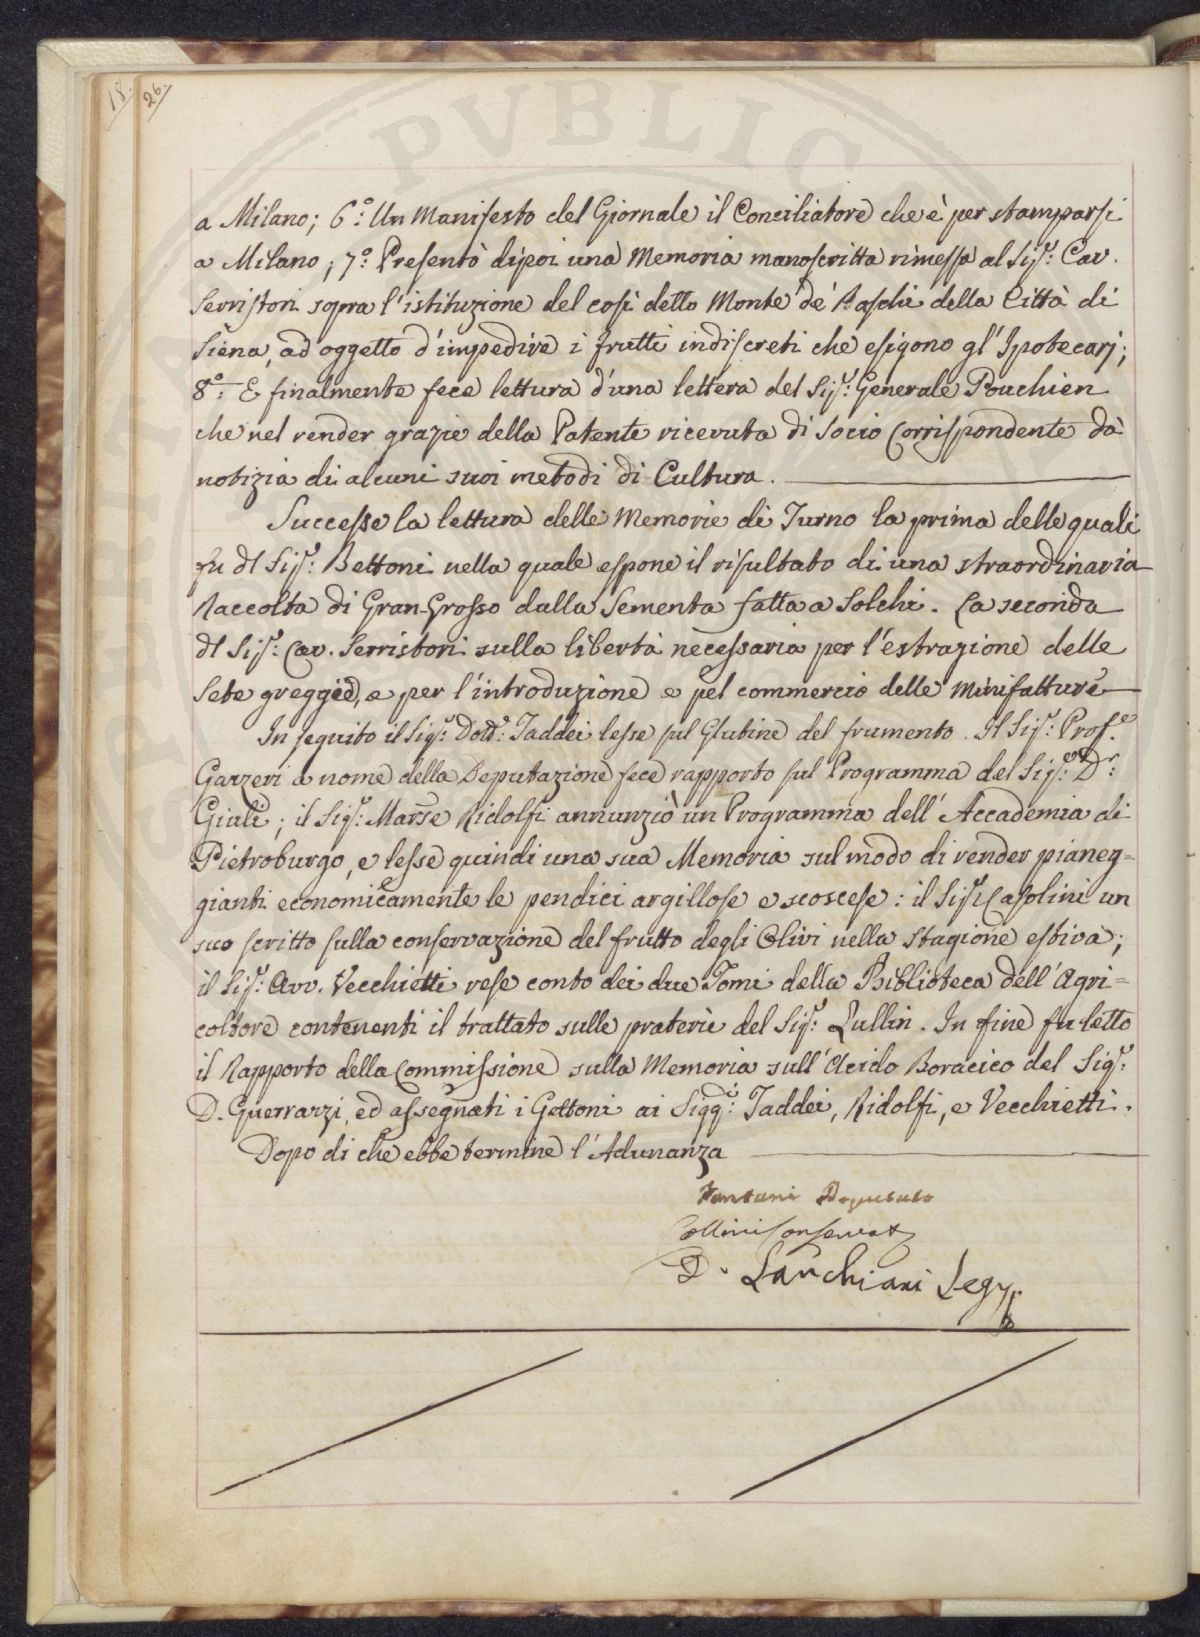 18.
26.
PVBLIC
a Milano; 6.° Un Manifesto del Giornale il Conciliatore che è per stamparsi
a Milano; 7.° Presentò dipoi una Memoria manoscritta rimessa al Sig.r Cav.
Serristori sopra l'istituzione del così detto Monte de' Paschi della Città di
Siena, ad oggetto d'impedire i frutti indiscreti che esigono gl'Ipotecarj;
8.° E finalmente fece lettura d'una lettera del Sig.r Generale Pouchien
che nel render grazie della Patente ricevuta di Socio Corrispondente dà
notizia di alcuni suoi metodi di Cultura.
Successe la lettura delle Memorie di Turno la prima delle quali
fu dl Sig.r Bettoni nella quale espone il risultato di una straordinaria
Raccolta di Gran-Grosso dalla Sementa fatta a Solchi. La seconda
dl Sig.r Cav. Serristori sulla libertà necessaria per l'estrazione delle
Sete greggie, e per l'introduzione e pel commercio delle Minifatture
In seguito il Sig.r Dott.e Taddei lesse sul Glutine del frumento. Il Sig.r Prof.e
Gazzeri a nome della Deputazione fece rapporto sul Programma del Sig.r D.r
Giuli; il Sig.r Marse Ridolfi annunziò un Programma dell'Accademia di
Pietroburgo, e lesse quindi una sua Memoria sul modo di render pianeg=
gianti economicamente le pendici argillose e scoscese: il Sig.r Casolini un
suo scritto sulla conservazione del frutto degli Olivi nella stagione estiva;
il Sig.r Avv. Vecchietti rese conto dei due Tomi della Biblioteca dell'Agri=
coltore contenenti il trattato sulle praterie del Sig.r Lullin. In fine fu letto
il Rapporto della Commissione sulla Memoria sull'Acido Boracico del Sig.r
D. Guerrazzi, ed assegnati i Gettoni ai Sigg.ri Taddei, Ridolfi, e Vecchietti.
Dopo di che ebbe termine l'Adunanza
Fantoni Deputato
Collini Conservat
D. Lanchiani Segr